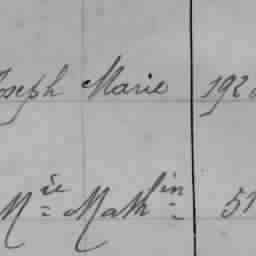 Joseph Marie 192
Mie Mathin 51